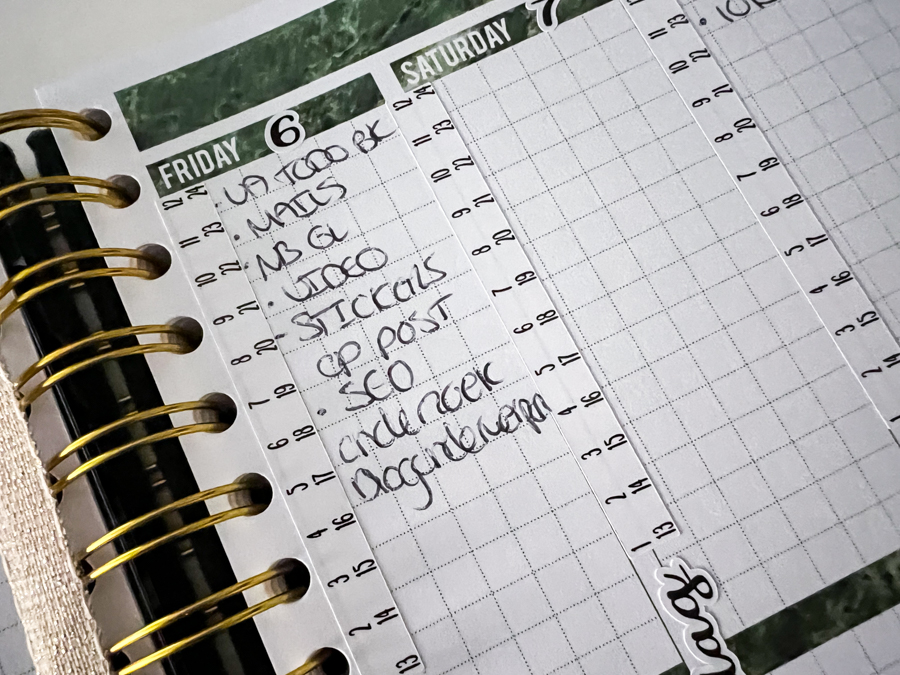 FRIDAY 6
• VA TODO BK
• MAILS
• NB GL
• VIDEO
- STICKERS
OP POST
• SEO
12 24
11 23
10 22
9 21
8 20
7 19
6 18
5 17
4 16
3 15
2 14
13
SATURDAY 7
12 24
11 23
10 22
9 21
8 20
7 19
6 18
5 17
4 16
3 15
2 14
1 13
11 23
10
9 21
8 20
7 19
6 18
5 17
4 16
3 15
2 14
1